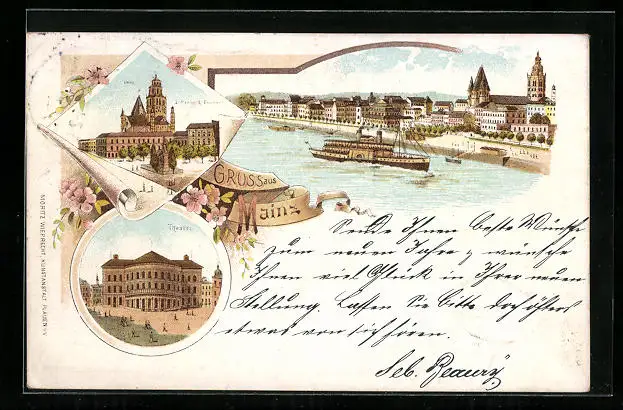 Dom.
GRUSS aus
Mainz
Theater.
MORITZ WIEPRECHT, KUNSTANSTALT, PLAUEN i/V
Sende Ihnen beste Wünsche
zum neuen Jahre & wünsche
Ihnen viel Glück in Ihrer neuen
Stellung. Lassen Sie bitte doch öfters
etwas von sich hören.
Seb.